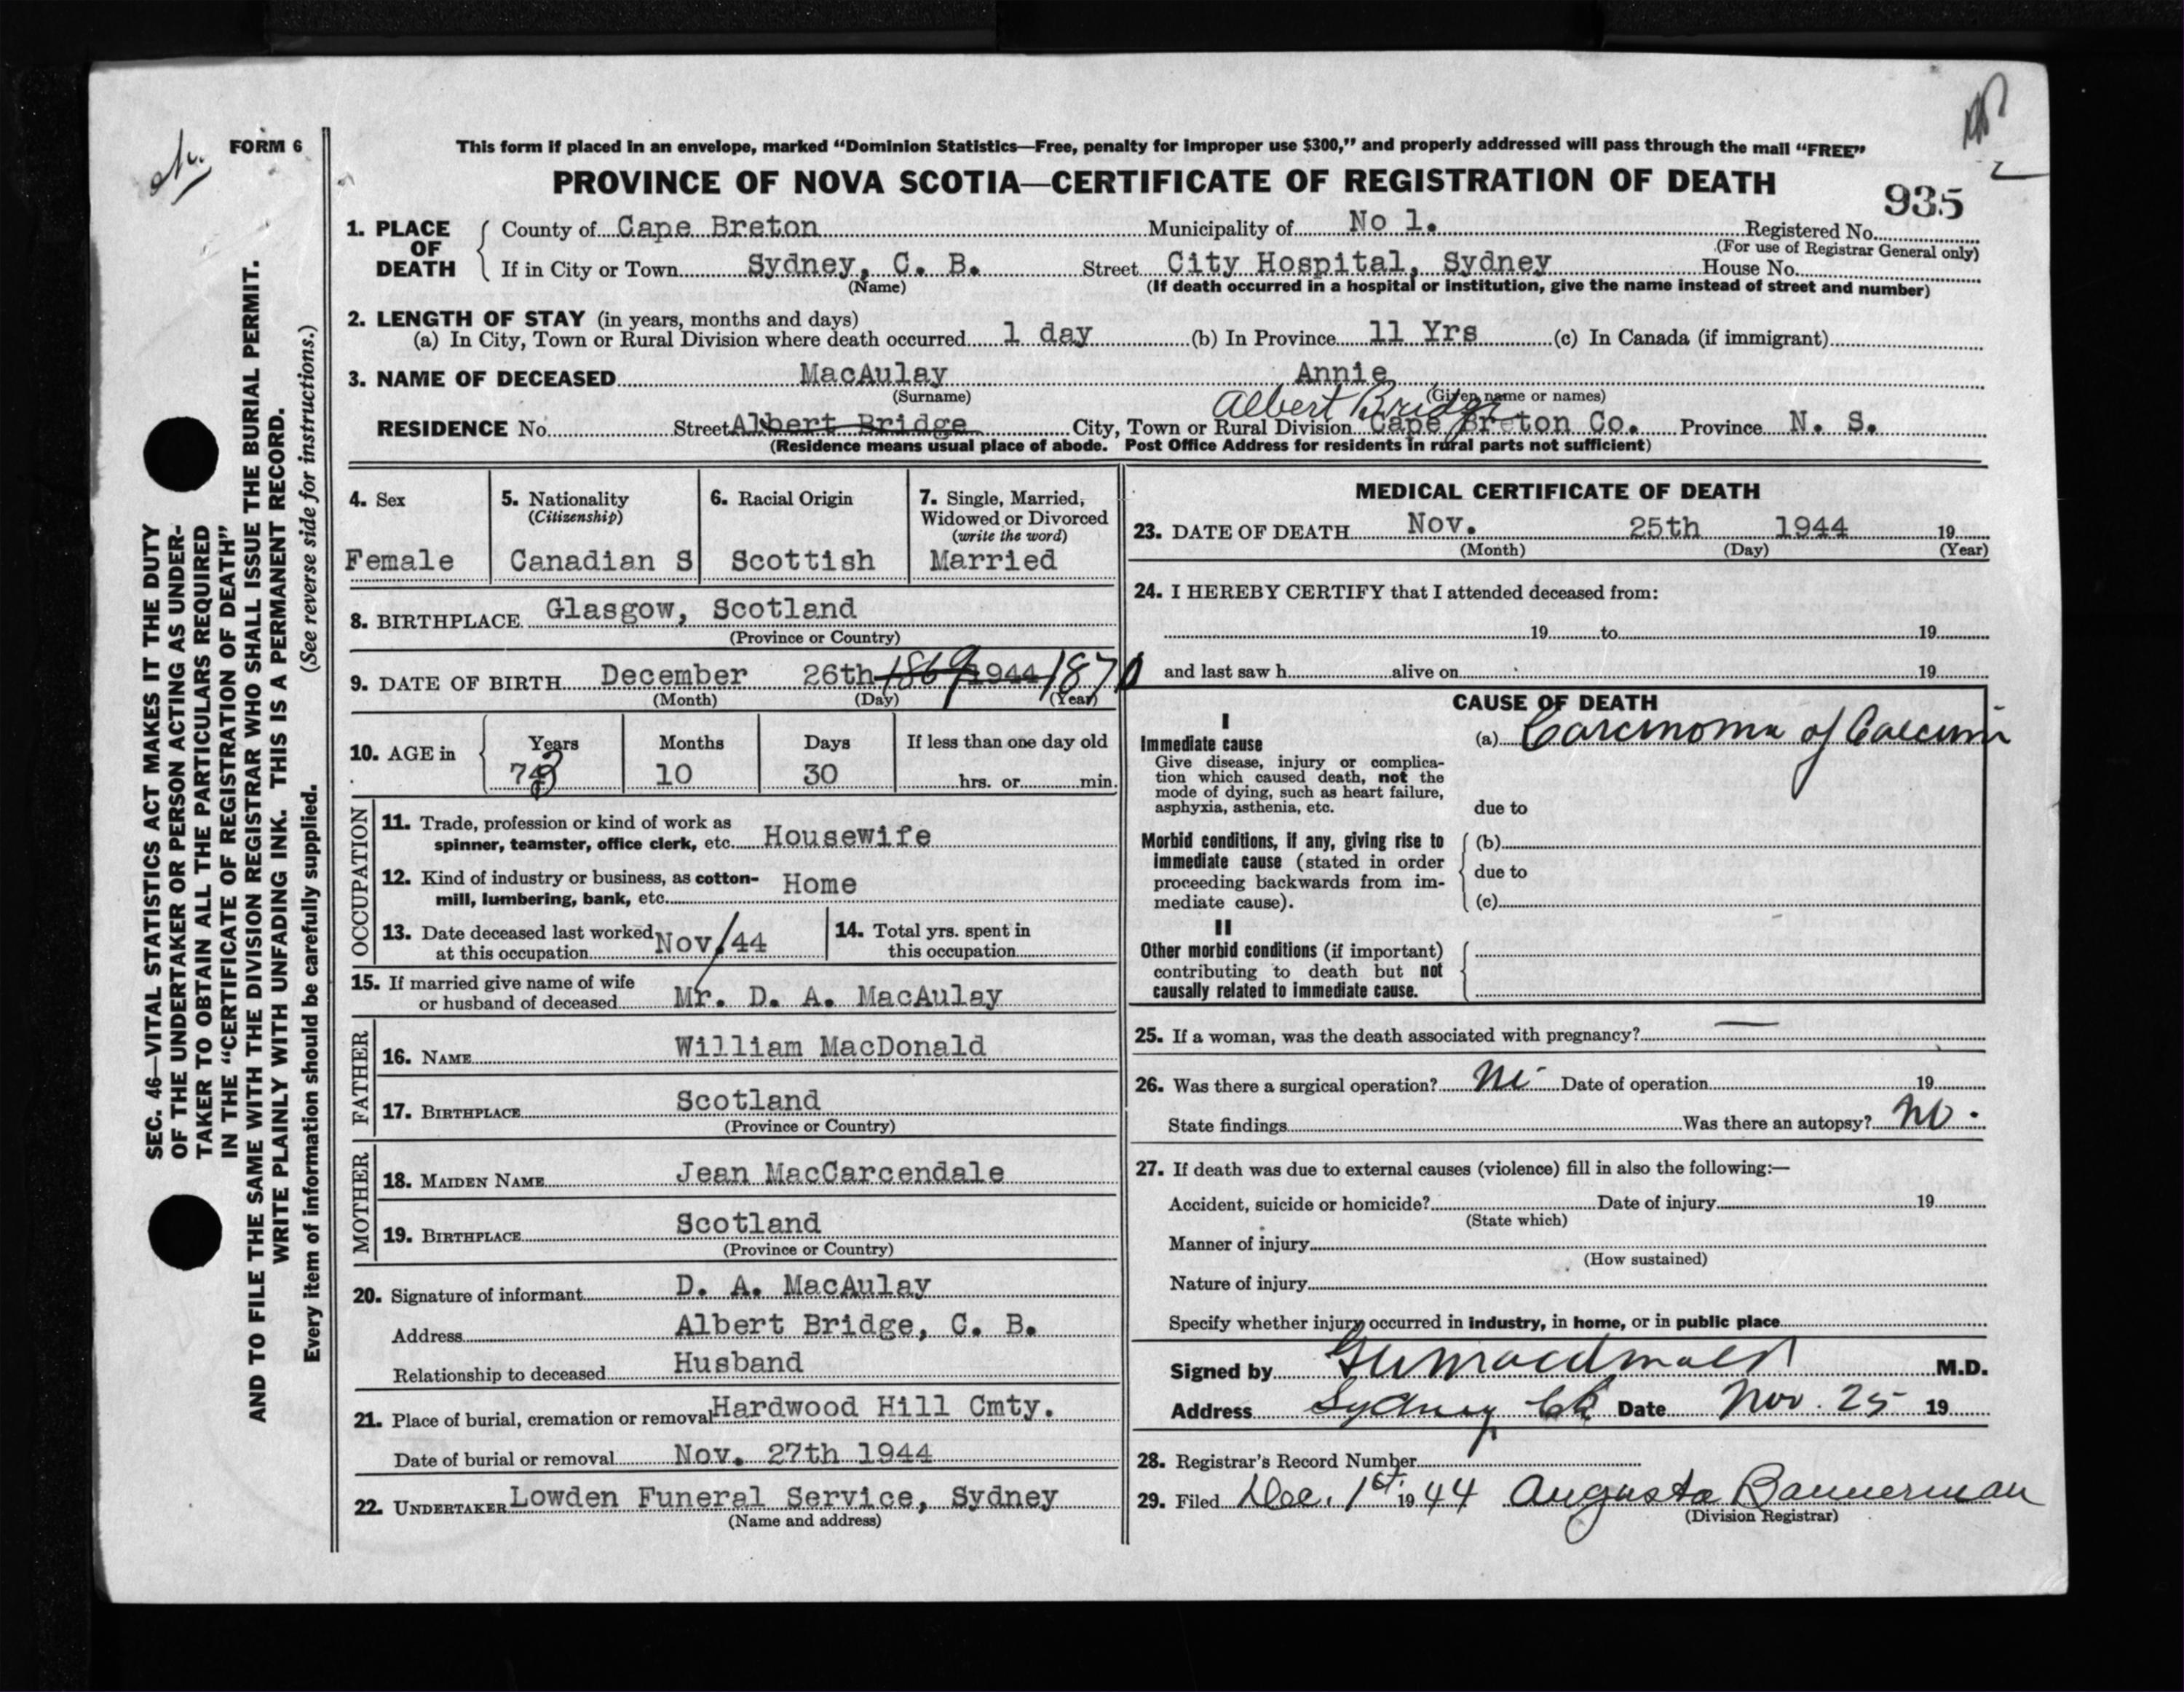 FORM 6
This form if placed in an envelope, marked "Dominion Statistics—Free, penalty for improper use $300," and properly addressed will pass through the mail "FREE"
PROVINCE OF NOVA SCOTIA—CERTIFICATE OF REGISTRATION OF DEATH
935
1. PLACE OF DEATH
County of Cape Breton Municipality of No 1. Registered No.
(For use of Registrar General only)
If in City or Town Sydney, C. B. Street City Hospital, Sydney House No.
(Name) (If death occurred in a hospital or institution, give the name instead of street and number)
2. LENGTH OF STAY (in years, months and days)
(a) In City, Town or Rural Division where death occurred 1 day (b) In Province 11 Yrs (c) In Canada (if immigrant)
3. NAME OF DECEASED MacAulay Annie
(Surname) (Given name or names)
Albert Bridge
RESIDENCE No. Street Albert Bridge City, Town or Rural Division Cape Breton Co. Province N. S.
(Residence means usual place of abode. Post Office Address for residents in rural parts not sufficient)
4. Sex
Female
5. Nationality
(Citizenship)
Canadian S
6. Racial Origin
Scottish
7. Single, Married,
Widowed or Divorced
(write the word)
Married
8. BIRTHPLACE Glasgow, Scotland
(Province or Country)
9. DATE OF BIRTH December 26th 1869 1944 1870
(Month) (Day) (Year)
10. AGE in
Years Months Days If less than one day old
73 10 30 hrs. or min.
OCCUPATION
11. Trade, profession or kind of work as
spinner, teamster, office clerk, etc. Housewife
12. Kind of industry or business, as cotton-
mill, lumbering, bank, etc. Home
13. Date deceased last worked
at this occupation Nov/44
14. Total yrs. spent in
this occupation
15. If married give name of wife
or husband of deceased Mr. D. A. MacAulay
FATHER
16. NAME William MacDonald
17. BIRTHPLACE Scotland
(Province or Country)
MOTHER
18. MAIDEN NAME Jean MacCarcendale
19. BIRTHPLACE Scotland
(Province or Country)
20. Signature of informant D. A. MacAulay
Address Albert Bridge, C. B.
Relationship to deceased Husband
21. Place of burial, cremation or removal Hardwood Hill Cmty.
Date of burial or removal Nov. 27th 1944
22. UNDERTAKER Lowden Funeral Service, Sydney
(Name and address)
MEDICAL CERTIFICATE OF DEATH
23. DATE OF DEATH Nov. 25th 1944 19
(Month) (Day) (Year)
24. I HEREBY CERTIFY that I attended deceased from:
19 to 19
and last saw h alive on 19
CAUSE OF DEATH
I
Immediate cause
Give disease, injury or complica-
tion which caused death, not the
mode of dying, such as heart failure,
asphyxia, asthenia, etc.
(a) Carcinoma of Caecum
due to
Morbid conditions, if any, giving rise to
immediate cause (stated in order
proceeding backwards from im-
mediate cause).
(b)
due to
(c)
II
Other morbid conditions (if important)
contributing to death but not
causally related to immediate cause.
25. If a woman, was the death associated with pregnancy? —
26. Was there a surgical operation? No Date of operation 19
State findings Was there an autopsy? No.
27. If death was due to external causes (violence) fill in also the following:—
Accident, suicide or homicide? Date of injury 19
(State which)
Manner of injury
(How sustained)
Nature of injury
Specify whether injury occurred in industry, in home, or in public place
Signed by Macdonald M.D.
Address Sydney CB Date Nov. 25 19
28. Registrar's Record Number
29. Filed Dec. 1st. 1944 Augusta Bannerman
(Division Registrar)
SEC. 46—VITAL STATISTICS ACT MAKES IT THE DUTY
OF THE UNDERTAKER OR PERSON ACTING AS UNDER-
TAKER TO OBTAIN ALL THE PARTICULARS REQUIRED
IN THE "CERTIFICATE OF REGISTRATION OF DEATH"
AND TO FILE THE SAME WITH THE DIVISION REGISTRAR WHO SHALL ISSUE THE BURIAL PERMIT.
WRITE PLAINLY WITH UNFADING INK. THIS IS A PERMANENT RECORD.
Every item of information should be carefully supplied. (See reverse side for instructions.)